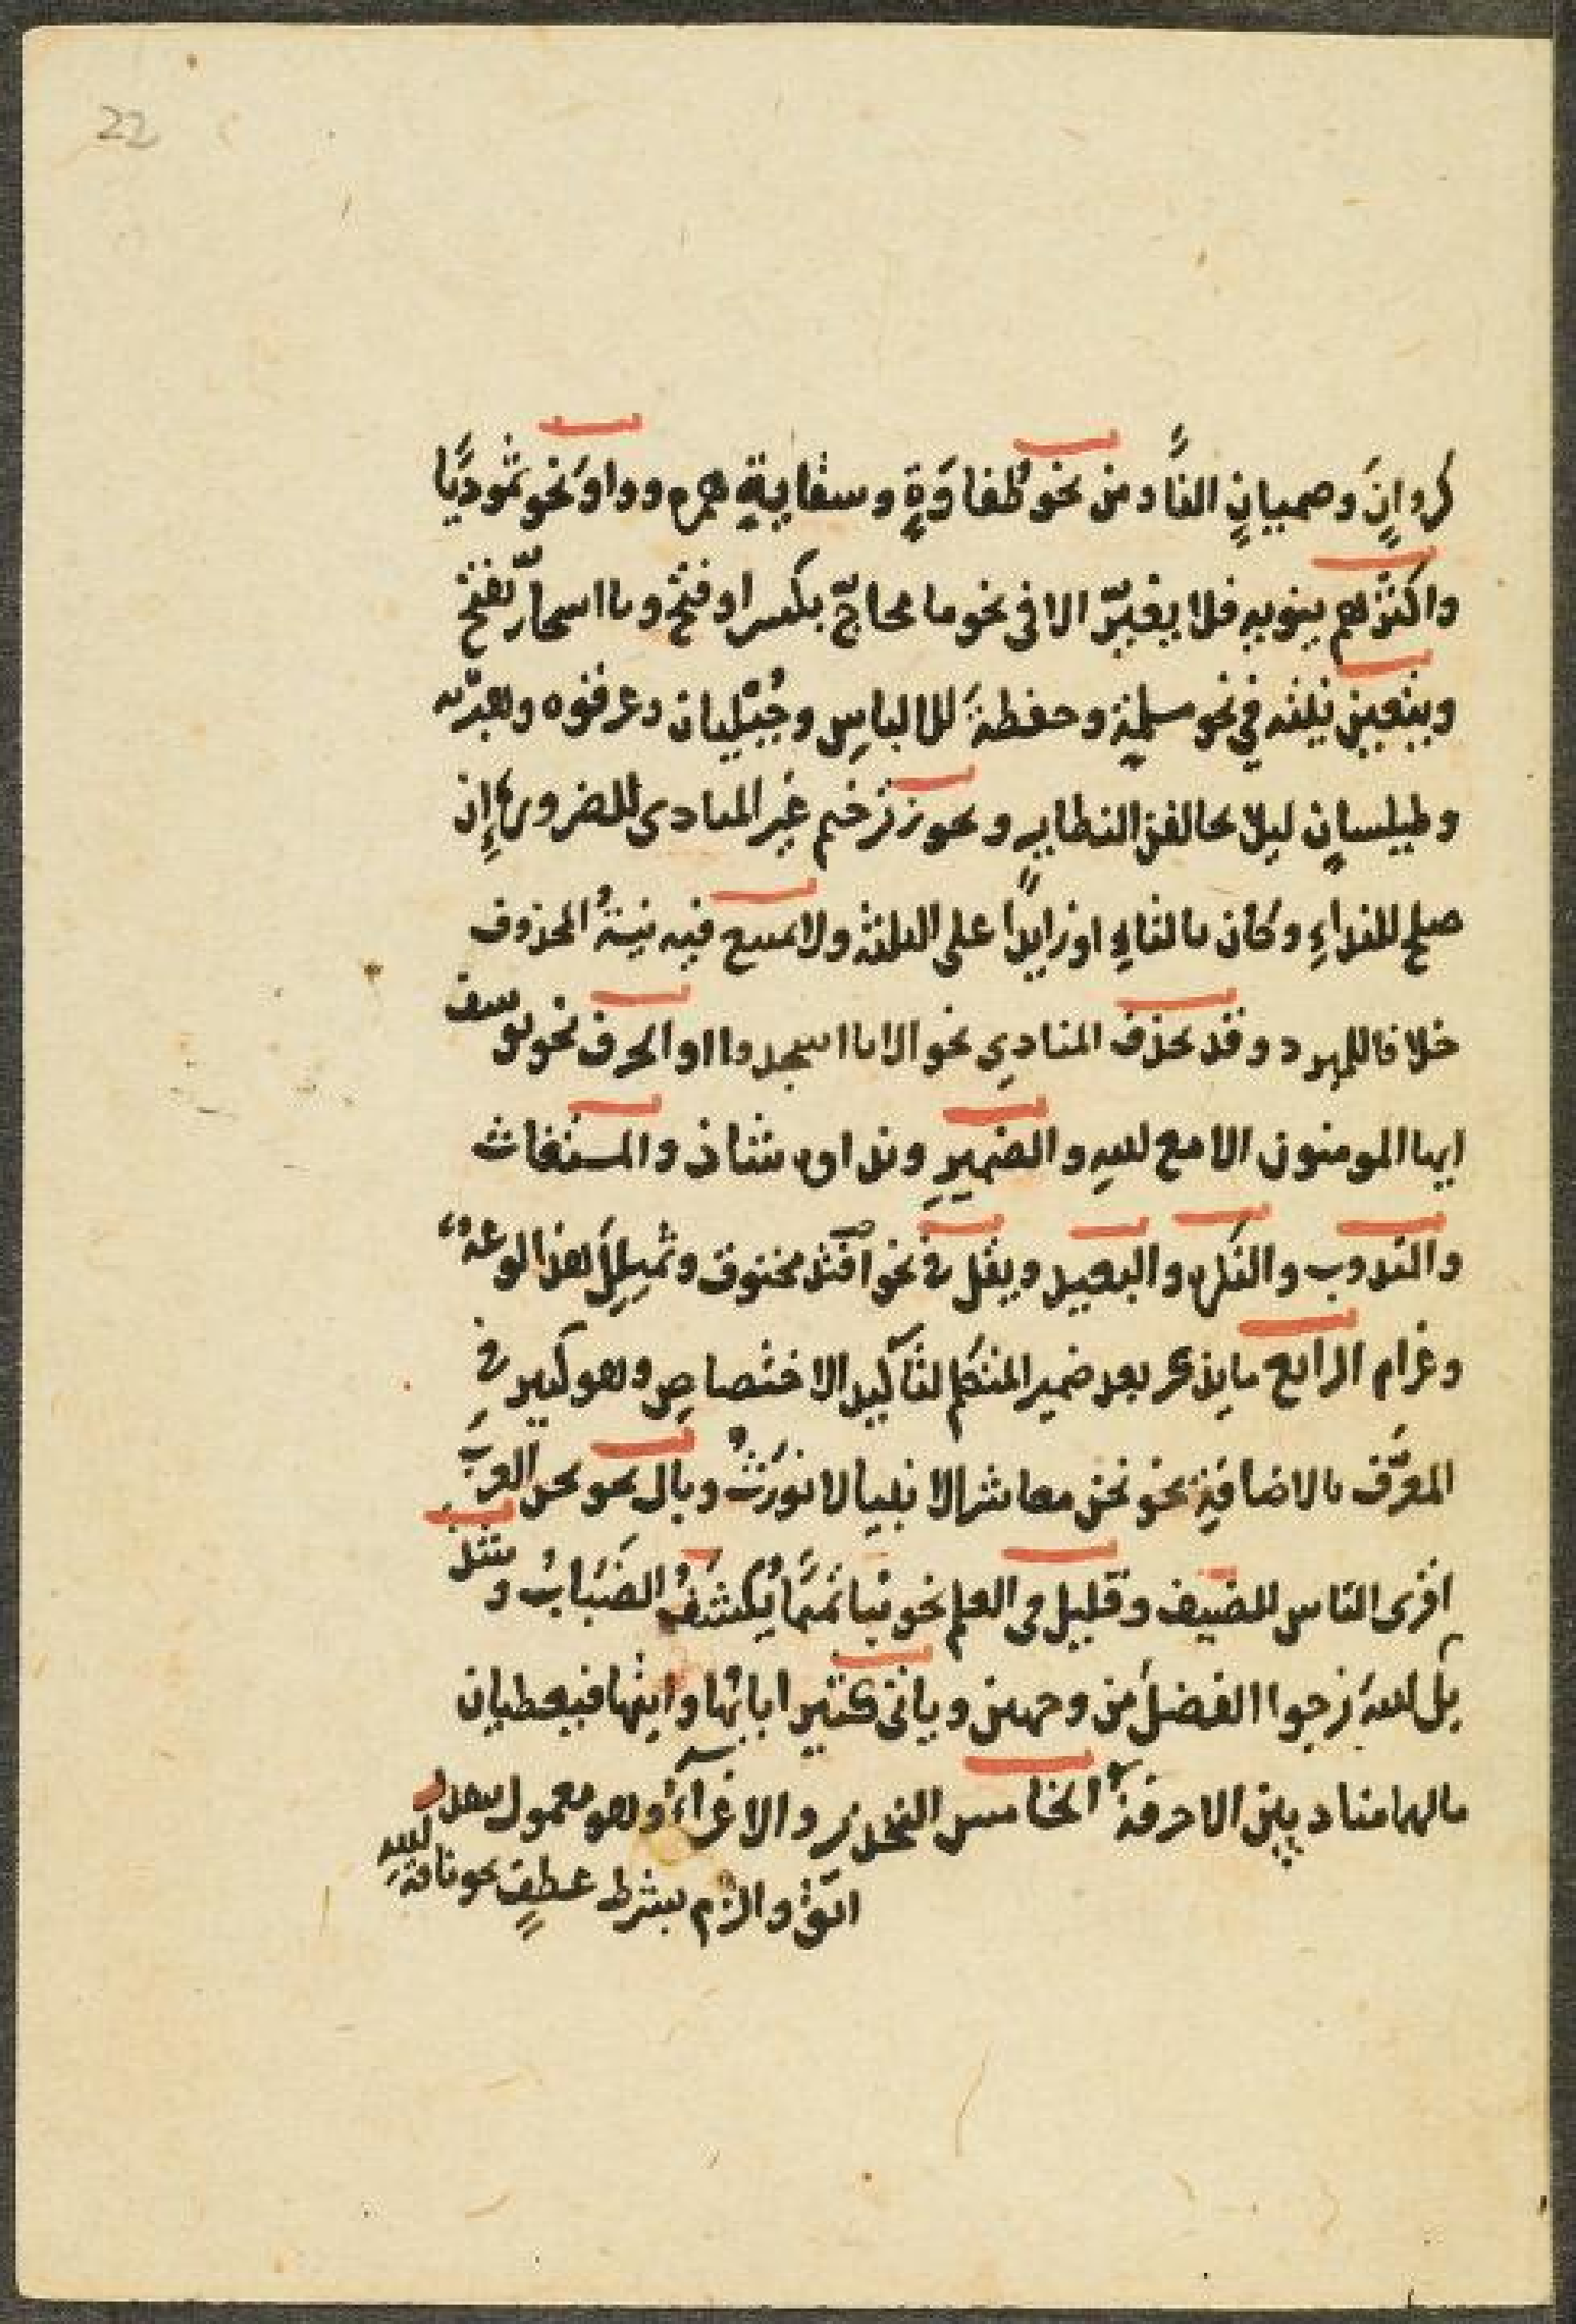 22
كروانٍ وصميانٍ الفًا ومن نحو طُفاوَةٍ وسقايةٍ همزه وواوَ نحو ثمودَيًا
واكثرهم ينويه فلا يغيّر الا في نحو ما محاجّ بكسر او فتح وبا اسحارّ بفتح
وبتعين نيته في نحو سلمة وحفظة للالباسِ وحُبْليان وعرقوه
وطيلسانٍ ليلا يخالفن النظايرٍ ويجوز ترخيم غير المنادى للضروره إن
صلح للنداءِ وكان بالتاءِ او زايدًا على الثلثة ولا يمتنع فيه نيةُ المحذوف
خلافا للمبرد وقد يحذف المنادي نحو الا يا اسجدوا او الحرف نحو يوسف
ايها المومنون الا مع اللهِ والضميرِ ونداوه شاذ والمستغاث
والمندوب والنكره والبعيد ويقل في نحو افتد مخنوق وثميل لهذا لوعةٌ
وغرام الرابع ما يذكر بعد ضمير المتكلم لتأكيد الاختصاصِ وهو كثير في
المعرَّف بالاضافةِ نحو نحن معاشر الانبيا لا نورَثُ وبال نحو نحن العربَ
اقرى الناس للضيف وقليل في العلم نحو بنا تميمًا يُكشفُ الضبابُ و
بك اللهَ نرجوا الفضل من وجهين وياتي كثير ابايها وايتها فيعطيان
مالهما مناديين الا حرفه الخامس التحذير والاغراءُ وهو معمول
اتق والزم بشرط عطفٍ نحو ناقة اللهِ